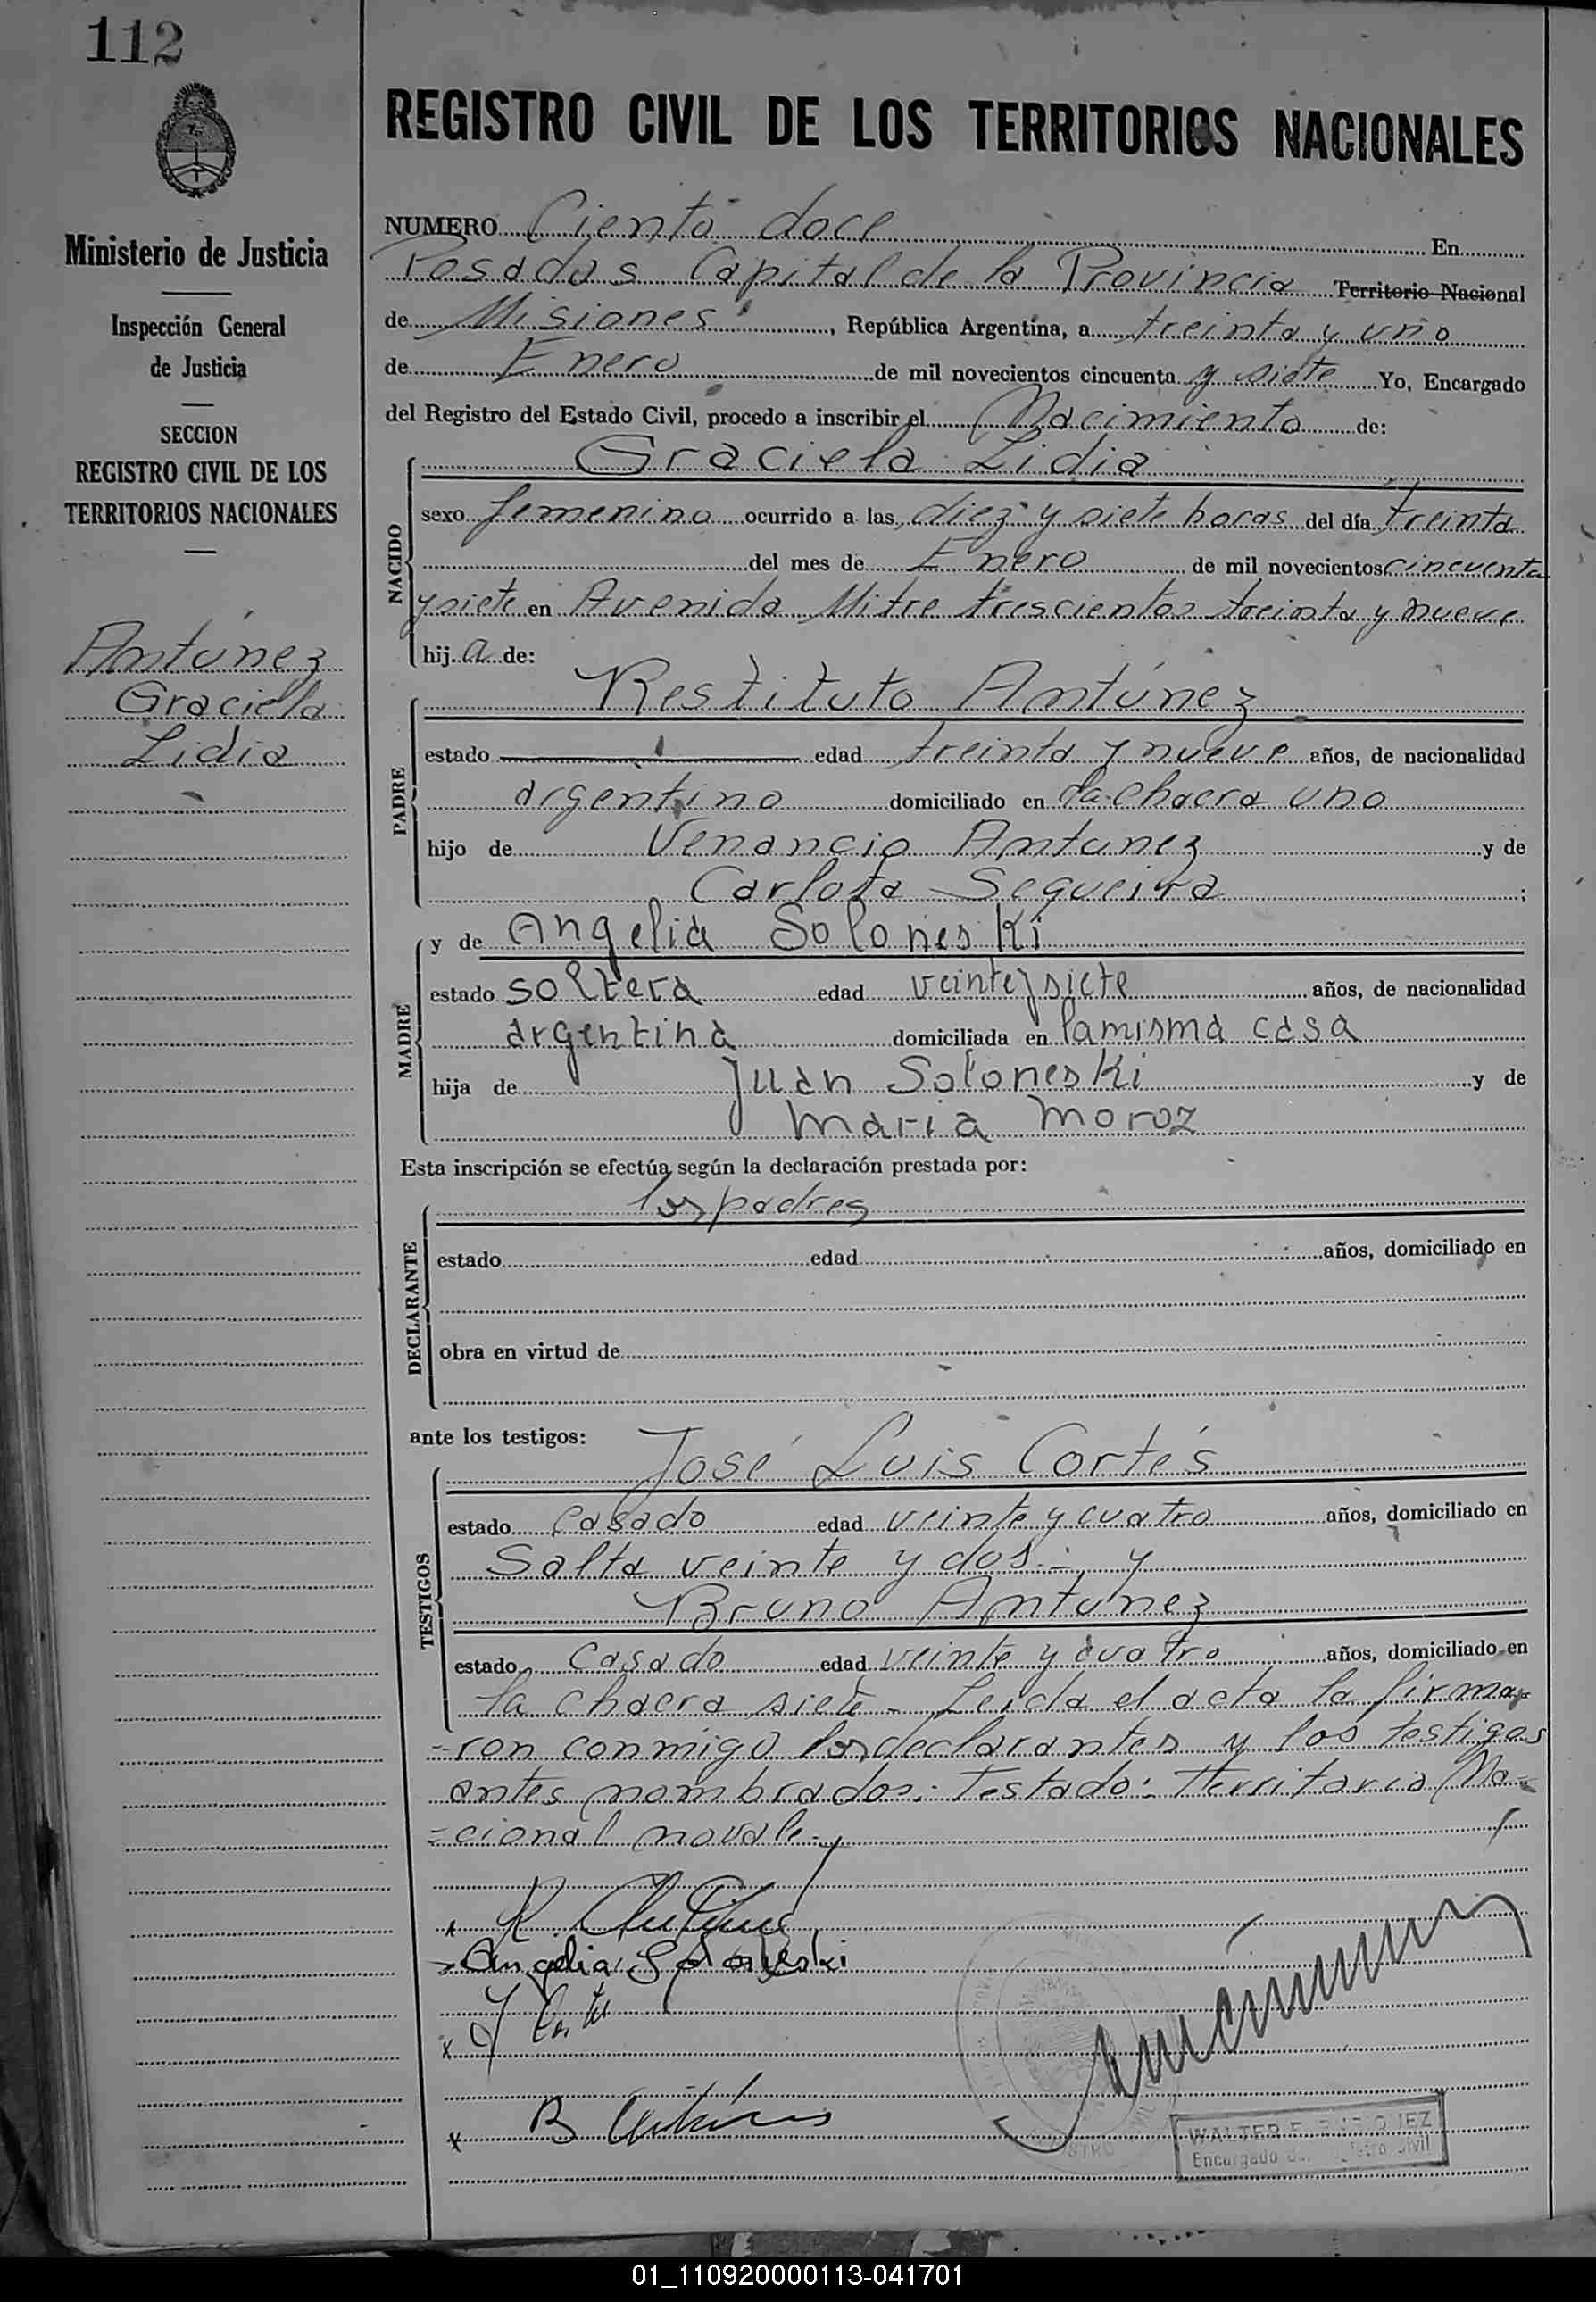 112
Ministerio de Justicia
Inspección General
de Justicia
SECCION
REGISTRO CIVIL DE LOS
TERRITORIOS NACIONALES
Antúnez
Graciela
Lidia
REGISTRO CIVIL DE LOS TERRITORIOS NACIONALES
NUMERO Ciento doce En
Posadas Capital de la Provincia Territorio Nacional
de Misiones, República Argentina, a treinta y uno
de Enero de mil novecientos cincuenta y siete Yo, Encargado
del Registro del Estado Civil, procedo a inscribir el Nacimiento de:
Graciela Lidia
NACIDO
sexo femenino ocurrido a las diez y siete horas del día treinta
del mes de Enero de mil novecientos cincuenta
y siete en Avenida Mitre trescientos treinta y nueve
hija de:
Restituto Antúnez
PADRE
estado edad treinta y nueve años, de nacionalidad
argentino domiciliado en la chacra uno
hijo de Venancio Antunez y de
Carlota Sequeira;
MADRE
y de Angelia Soloneski
estado soltera edad veinte y siete años, de nacionalidad
argentina domiciliada en la misma casa
hija de Juan Soloneski y de
Maria Moroz
Esta inscripción se efectúa según la declaración prestada por:
los padres
DECLARANTE
estado edad años, domiciliado en
obra en virtud de
ante los testigos:
José Luis Cortés
TESTIGOS
estado casado edad veinte y cuatro años, domiciliado en
Salta veinte y dos.- y
Bruno Antúnez
estado casado edad veinte y cuatro años, domiciliado en
la chacra siete - Leida el acta la firma-
-ron conmigo los declarantes y los testigos
antes nombrados. Testado: Territorio Na-
=cional no vale.
R. Antúnez
Angelia Soloneski
B Antúnez
WALTER
Encargado Registro Civil
01_110920000113-041701